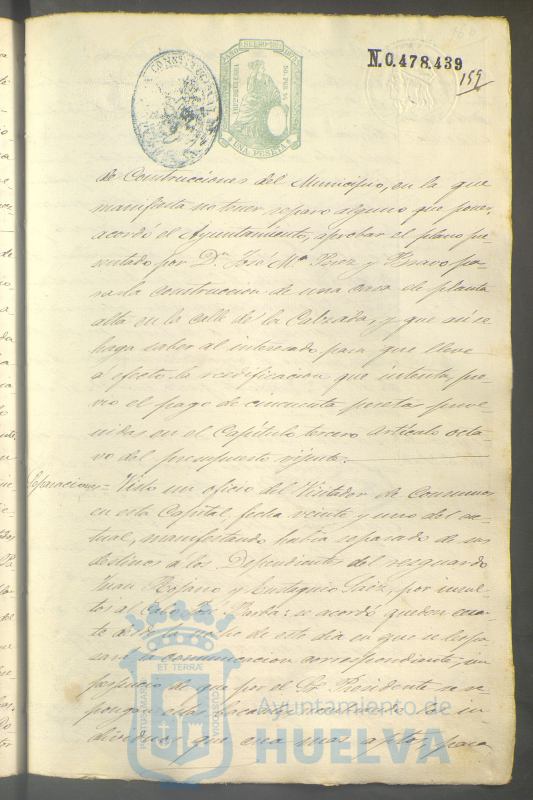 N.0.478.439
159
UNA PESETA
de Construcciones del Municipio, en la que
manifiesta no tener reparo alguno que poner,
acordó el Ayuntamiento, aprobar el plano pre-
sentado por Dn. José Mª y Bravo pa-
ra la construccion de una casa de planta
alta en la calle de la Calzada, y que asi se
haga saber al interesado para que lleve
á efecto la reedificacion que intenta, pre-
vio el pago de cincuenta pesetas preve-
nidas en el Capítulo tercero Artículo octa-
vo del presupuesto vijente.
Separaciones = Visto un oficio del Visitador de Consumos
en esta Capital fecha veinte y uno del ac-
tual, manifestando habia separado de sus
destinos á los Dependientes del resguardo
Juan y Eustaquio por insul-
tos al se acordó queden
de este dia en que se
la comunicacion correspondiente, sin
perjuicio de que por el Sr. Presidente se
de los in-
dividuos que crea mas aptos para
PORTUS MARIS
ET TERRÆ
CUSTODIA
Ayuntamiento de
HUELVA